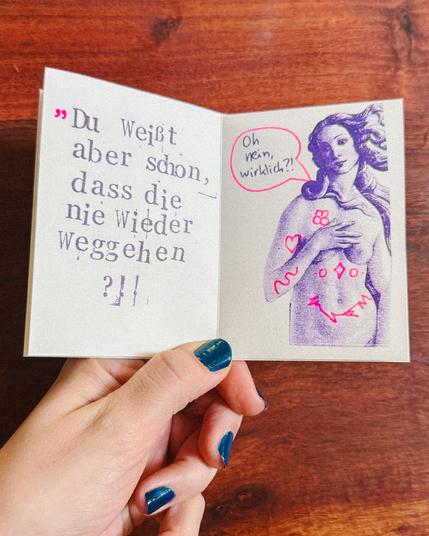 „Du Weißt
aber schon,
dass die
nie Wieder
Weggehen
?!!
Oh
nein,
wirklich?!